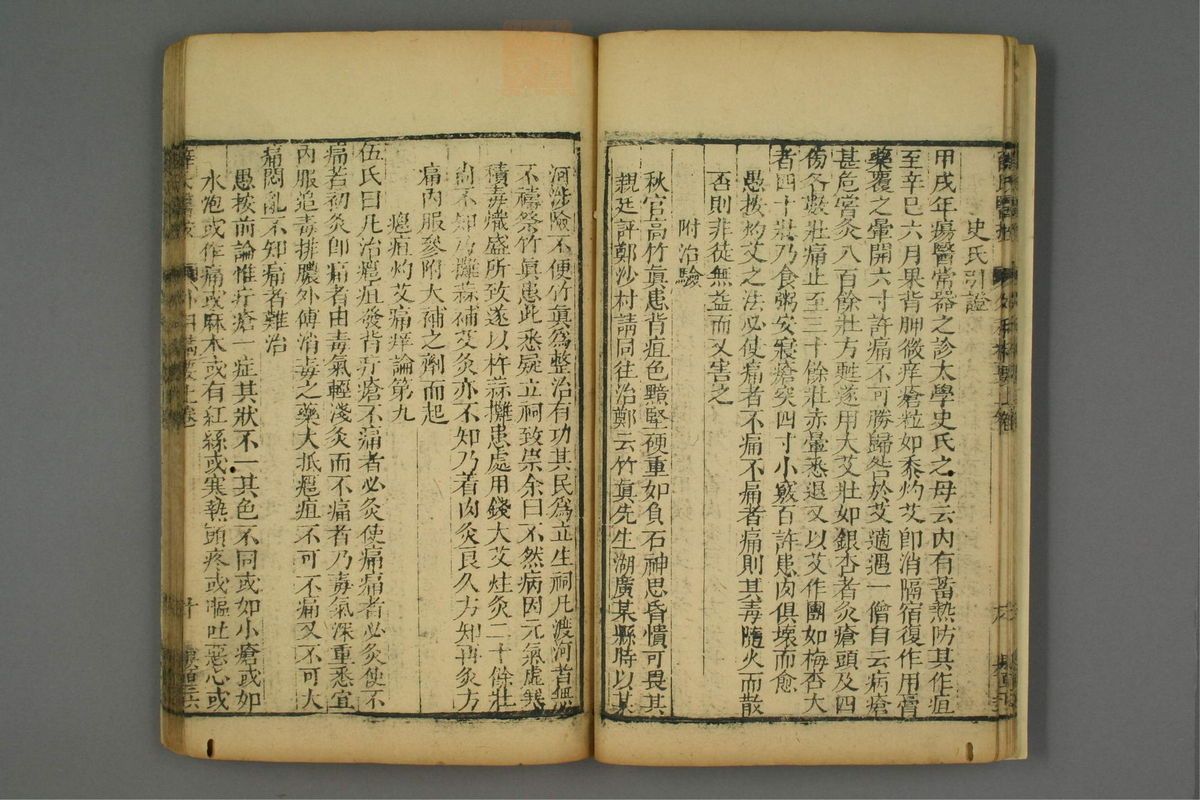 史氏引證
甲戌年瘍醫常器之診太學史氏之母云內有蓄熱防其作疽
至辛巳六月果背胛微痒瘡粒如黍灼艾卽消隔宿復作用膏
藥覆之暈開六寸許痛不可勝歸咎於艾適遇一僧自云病瘡
甚危嘗灸八百餘壯方甦遂用大艾壯如銀杏者灸瘡頭及四
傍各數壯痛止至三十餘壯赤暈悉退又以艾作團如梅杏大
者四十壯乃食粥安寢瘡突四寸小竅百許患肉俱壞而愈
愚按灼艾之法必使痛者不痛不痛者痛則其毒隨火而散
否則非徒無益而又害之
附治驗
秋官高竹眞患背疽色黯堅硬重如負石神思昏憒可畏其
親廷評鄭沙村請同往治鄭云竹眞先生湖廣某縣時以某
河涉險不便竹眞爲整治有功其民爲立生祠凡渡河者無
不禱祭竹眞患此悉疑立祠致祟余曰不然病因元氣虛寒
積毒熾盛所致遂以杵蒜攤患處用錢大艾炷灸二十餘壯
尚不知乃攤蒜補艾灸亦不知乃着肉灸良久方知再灸方
痛內服參附大補之劑而起
癰疽灼艾痛痒論第九
伍氏曰凡治癰疽發背疔瘡不痛者必灸使痛痛者必灸使不
痛若初灸卽痛者由毒氣輕淺灸而不痛者乃毒氣深重悉宜
內服追毒排膿外傅消毒之藥大抵癰疽不可不痛又不可大
痛悶亂不知痛者難治
愚按前論惟疔瘡一症其狀不一其色不同或如小瘡或如
水泡或作痛或麻木或有紅絲或寒熱頭疼或嘔吐惡心或